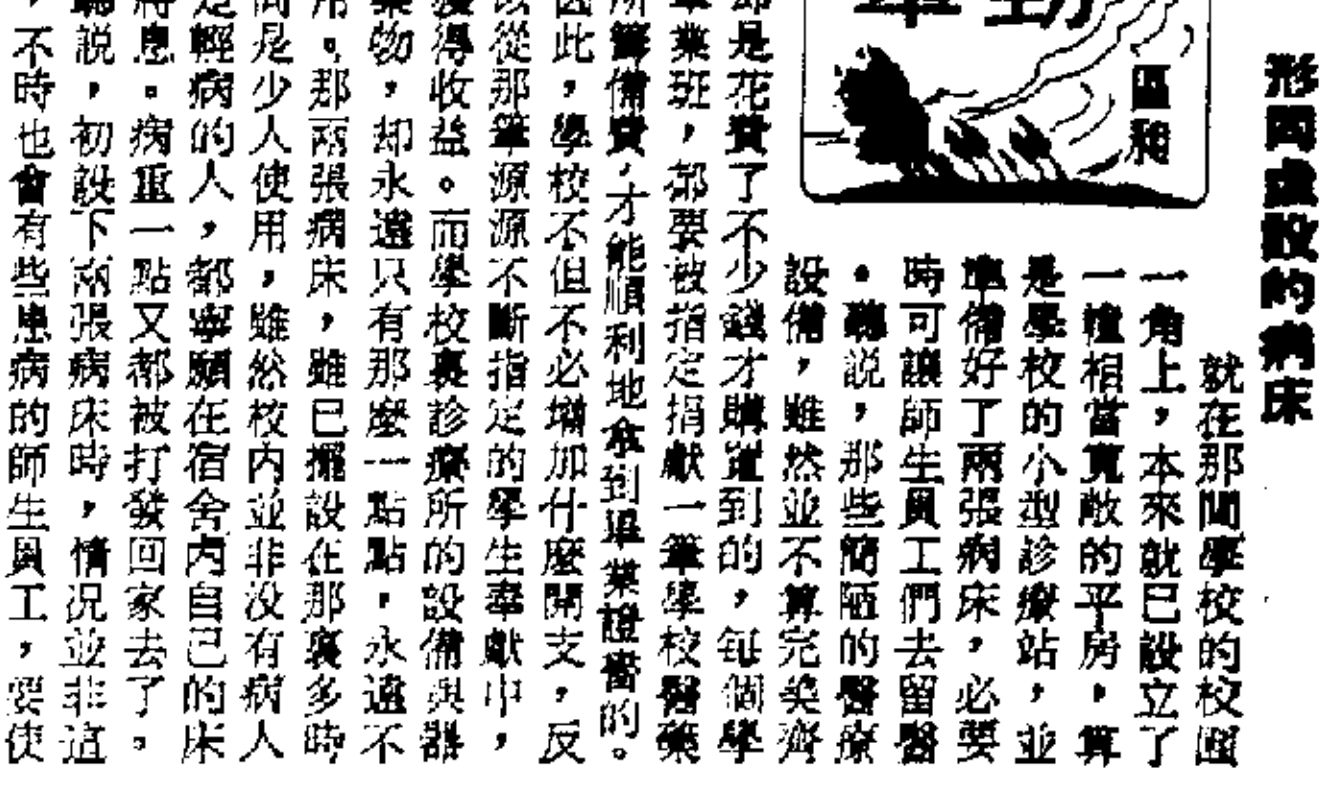 形同虛設的病床
就在那間學校的校園
一角上，本來就已設立了
一幢相當寬敞的平房，算
是學校的小型診療站，並
準備好了兩張病床，必要
時可讓師生員工們去留醫
。聽説，那些簡陋的醫療
設備，雖然並不算完美齊
却是花費了不少錢才購置到的，每個學
畢業班，都要被指定捐獻一筆學校醫藥
所籌備費，才能順利地拿到畢業證書的。
因此，學校不但不必增加什麼開支，反
該從那筆源源不斷指定的學生奉獻中，
獲得收益。而學校裏診療所的設備與器
藥物，却永遠只有那麼一點點，永遠不
用。那兩張病床，雖已擺設在那裏多時
間是少人使用，雖然校内並非没有病人
是輕病的人，都寧願在宿舍内自己的床
將息。病重一點又都被打發回家去了。
聽説，初設下兩張病床時，情况並非這
，不時也會有些患病的師生員工，要使
區和